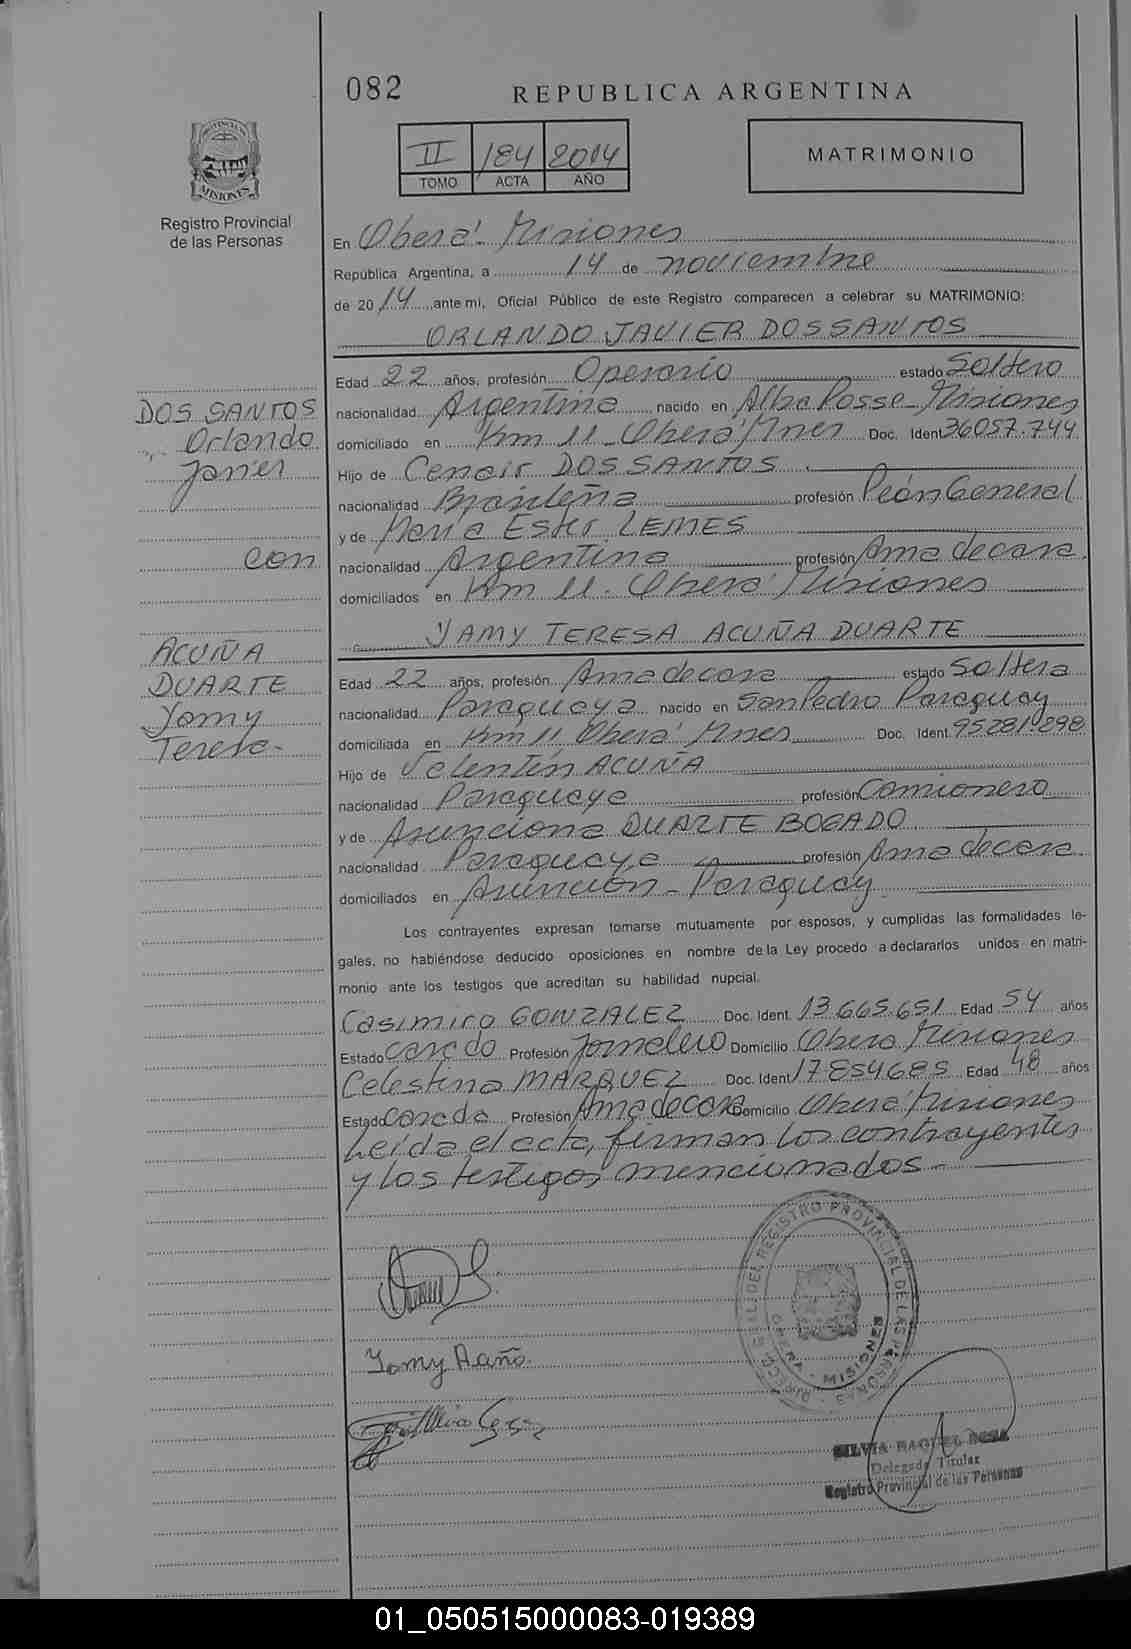 082
REPUBLICA ARGENTINA
II 184 2014
TOMO ACTA AÑO
MATRIMONIO
PROVINCIA DE
MISIONES
Registro Provincial
de las Personas
En Oberá - Misiones
República Argentina, a 14 de noviembre
de 20 14, ante mi, Oficial Público de este Registro comparecen a celebrar su MATRIMONIO:
ORLANDO JAVIER DOS SANTOS
Edad 22 años, profesión Operario estado Soltero
nacionalidad Argentina, nacido en Alba Posse - Misiones
domiciliado en Km 11 - Oberá Mnes Doc. Ident 36057.749
Hijo de Cenair DOS SANTOS
nacionalidad Brasileña profesión Peón General
y de María Ester LEMES
nacionalidad Argentina profesión Ama de casa
domiciliados en Km 11 - Oberá Misiones
DOS SANTOS
Orlando
Javier
con
ACUÑA
DUARTE
Yamy
Teresa -
YAMY TERESA ACUÑA DUARTE
Edad 22 años, profesión Ama de casa estado Soltera
nacionalidad Paraguaya nacido en San Pedro Paraguay
domiciliada en Km 11 Oberá Mnes Doc. Ident. 95281.898
Hijo de Valentín ACUÑA
nacionalidad Paraguaya profesión Camionero
y de Asunciona DUARTE BOGADO
nacionalidad Paraguaya profesión Ama de casa
domiciliados en Asunción - Paraguay
Los contrayentes expresan tomarse mutuamente por esposos, y cumplidas las formalidades le-
gales, no habiéndose deducido oposiciones en nombre de la Ley procedo a declararlos unidos en matri-
monio ante los testigos que acreditan su habilidad nupcial.
Casimiro GONZALEZ Doc. Ident. 13.665.651 Edad 54 años
Estado casado Profesión Jornalero Domicilio Oberá Misiones
Celestina MARQUEZ Doc. Ident 17854685 Edad 48 años
Estado casada Profesión Ama de casa Domicilio Oberá Misiones
Leída el acta, firman los contrayentes
y los testigos mencionados -
DIRECC. GRAL. DEL REGISTRO PROVINCIAL DE LAS PERSONAS
OBERA - MISIONES
Yamy
SILVIA RAQUEL
Delegada Titular
Registro Provincial de las Personas
01_050515000083-019389